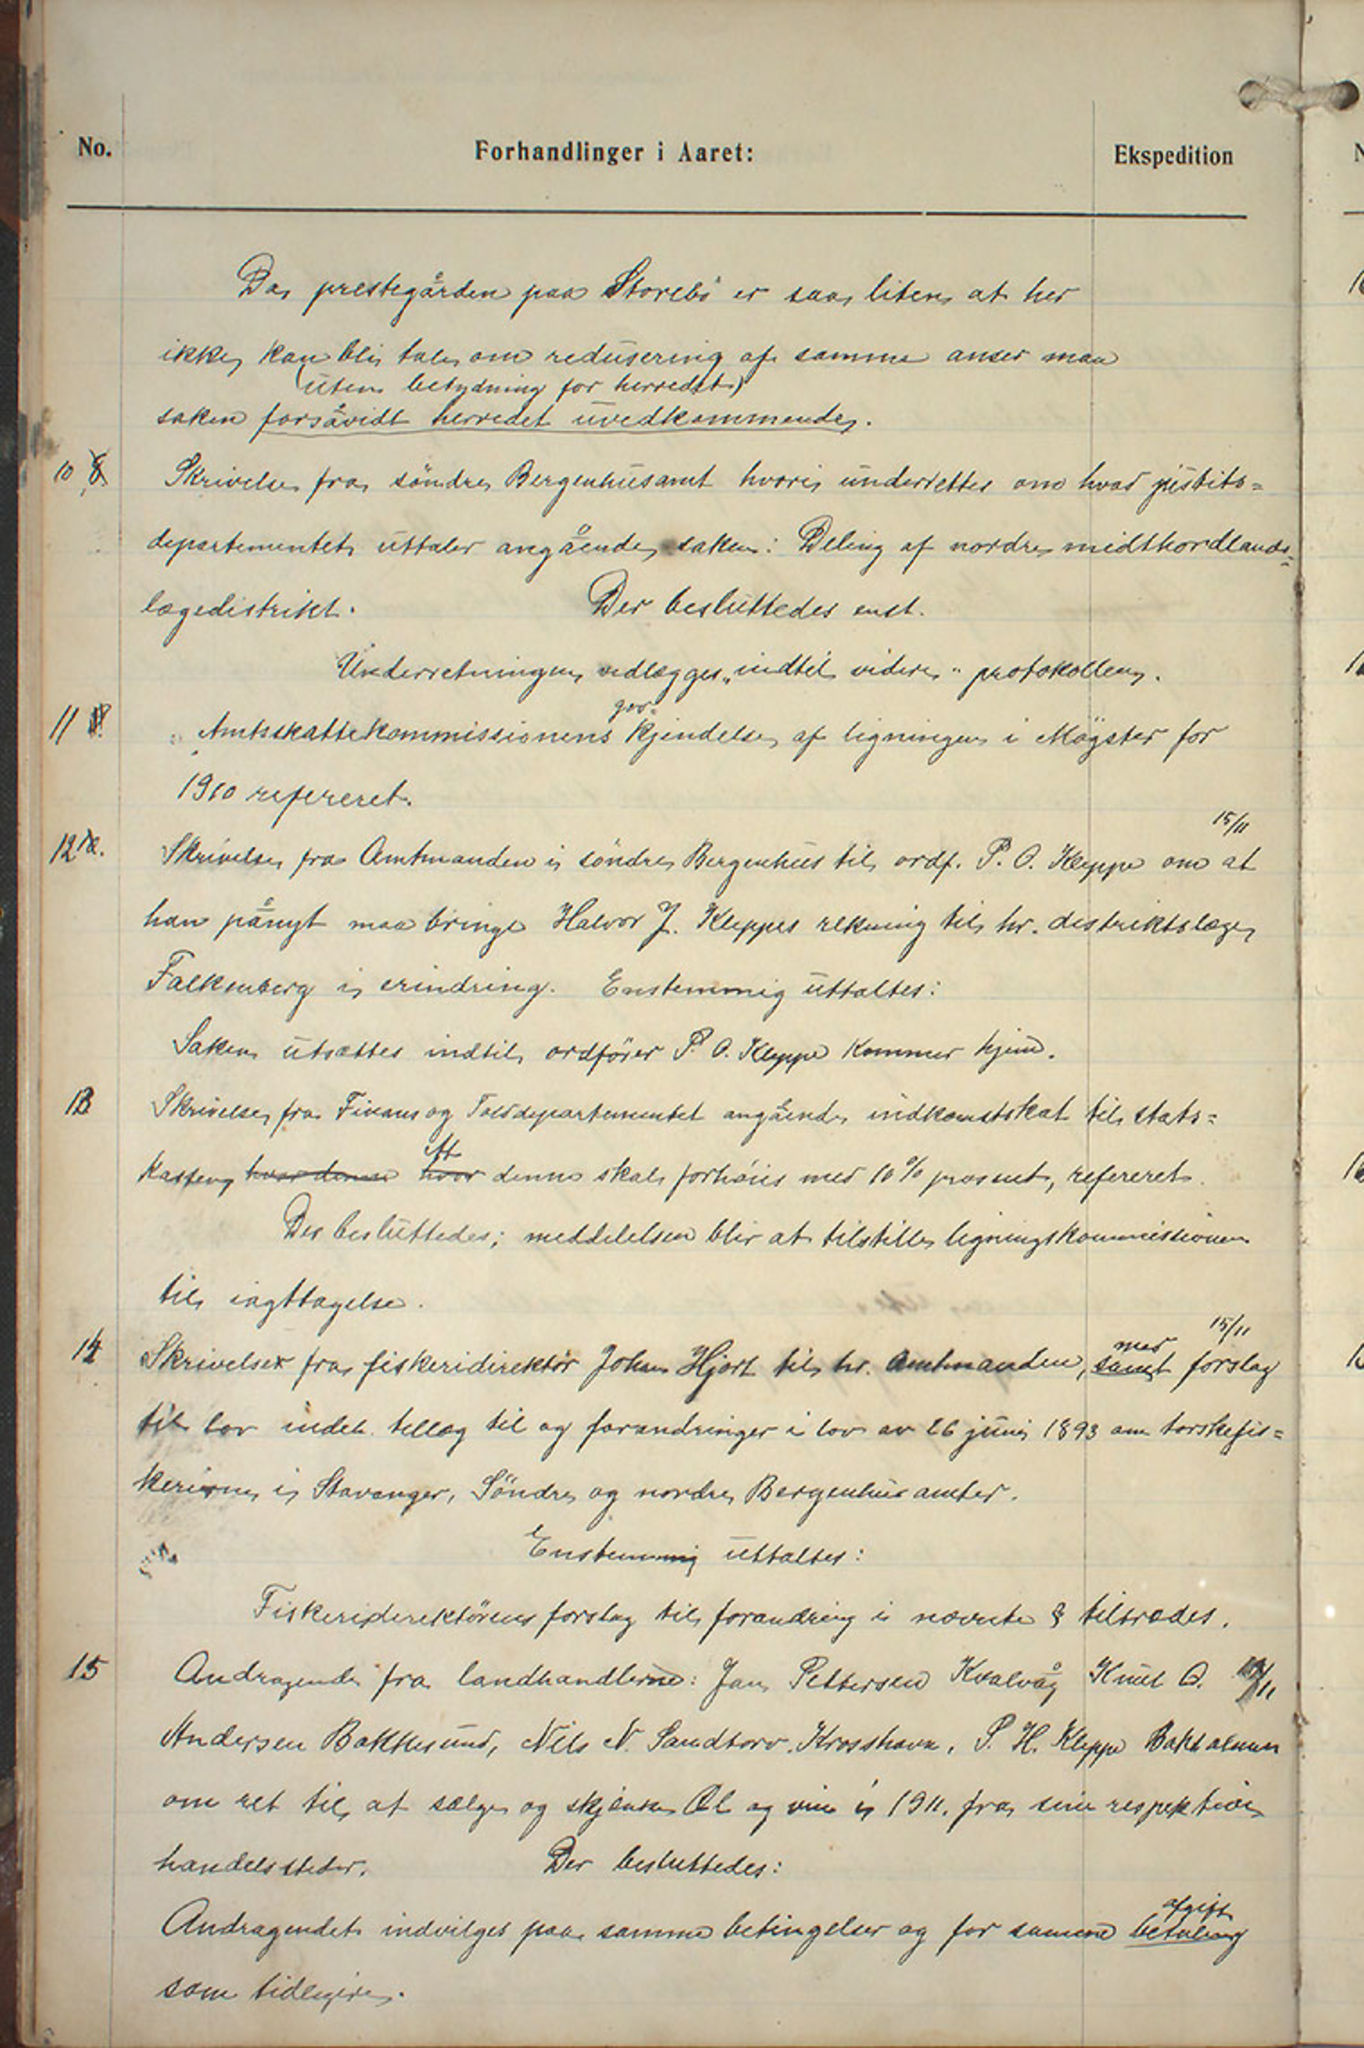 No. Forhandlinger i Aaret: Ekspedition
Da prestegården paa Storebö er saa liten at her
ikke kan bli tale om redusering af samme anser man
(uten betydning for herredet)
saken forsåvidt herredet uvedkommende.
10 Skrivelse fra söndre Bergenhusamt hvori underrettes om hvad justits=
departementet uttaler angående saken: Deling af nordre midthordlands=
lægedistrikt. Der besluttedes enst.
Underretningen vedlægges "indtil videre" protokollen.
11 Amtsskattekommissionens kjendelse af ligningen i Mögster for
1910 refereret.
15/11
12 Skrivelse fra Amtmanden i söndre Bergenhus til ordf. P. O. Kleppe om at
han pånyt maa bringe Halvor J. Kleppes rekning til hr. distriktslæge
Falkenberg i erindring. Enstemmig uttaltes:
Saken utsættes indtil ordförer P. O. Kleppe kommer hjem.
13 Skrivelse fra Finans og Tolddepartementet angående indkomstskat til stats=
att
kassen hvor denne hvor denne skal forhöies med 10 % prosent, refereret.
Der besluttedes; meddelelsen blir at tilstille ligningskommissionen
til iagttagelse.
med 15/11
14 Skrivelse fra fiskeridirektör Johan Hjort til hr. Amtmanden, samt forslag
til lov indeh. tillæg til og forandringer i lov av 26 juni 1893 om torskefis=
kerierne i Stavanger, Söndre og nordre Bergenhus amter.
Enstemmig uttaltes:
Fiskeridirektörens forslag til forandring i nævnte § tiltrædes.
15 Andragende fra landhandlerne: Jan Pettersen Kvalvåg Knut O.
Andersen Bakkesund, Nils N. Sandtorv, Krosshavn, P. H. Kleppe Bakholmen
om ret til at sælge og skjænke Öl og vin i 1911. fra sine respektive
handelssteder. Der besluttedes:
afgift
Andragendet indvilges paa samme betingelser og for samme betaling
som tidligere.